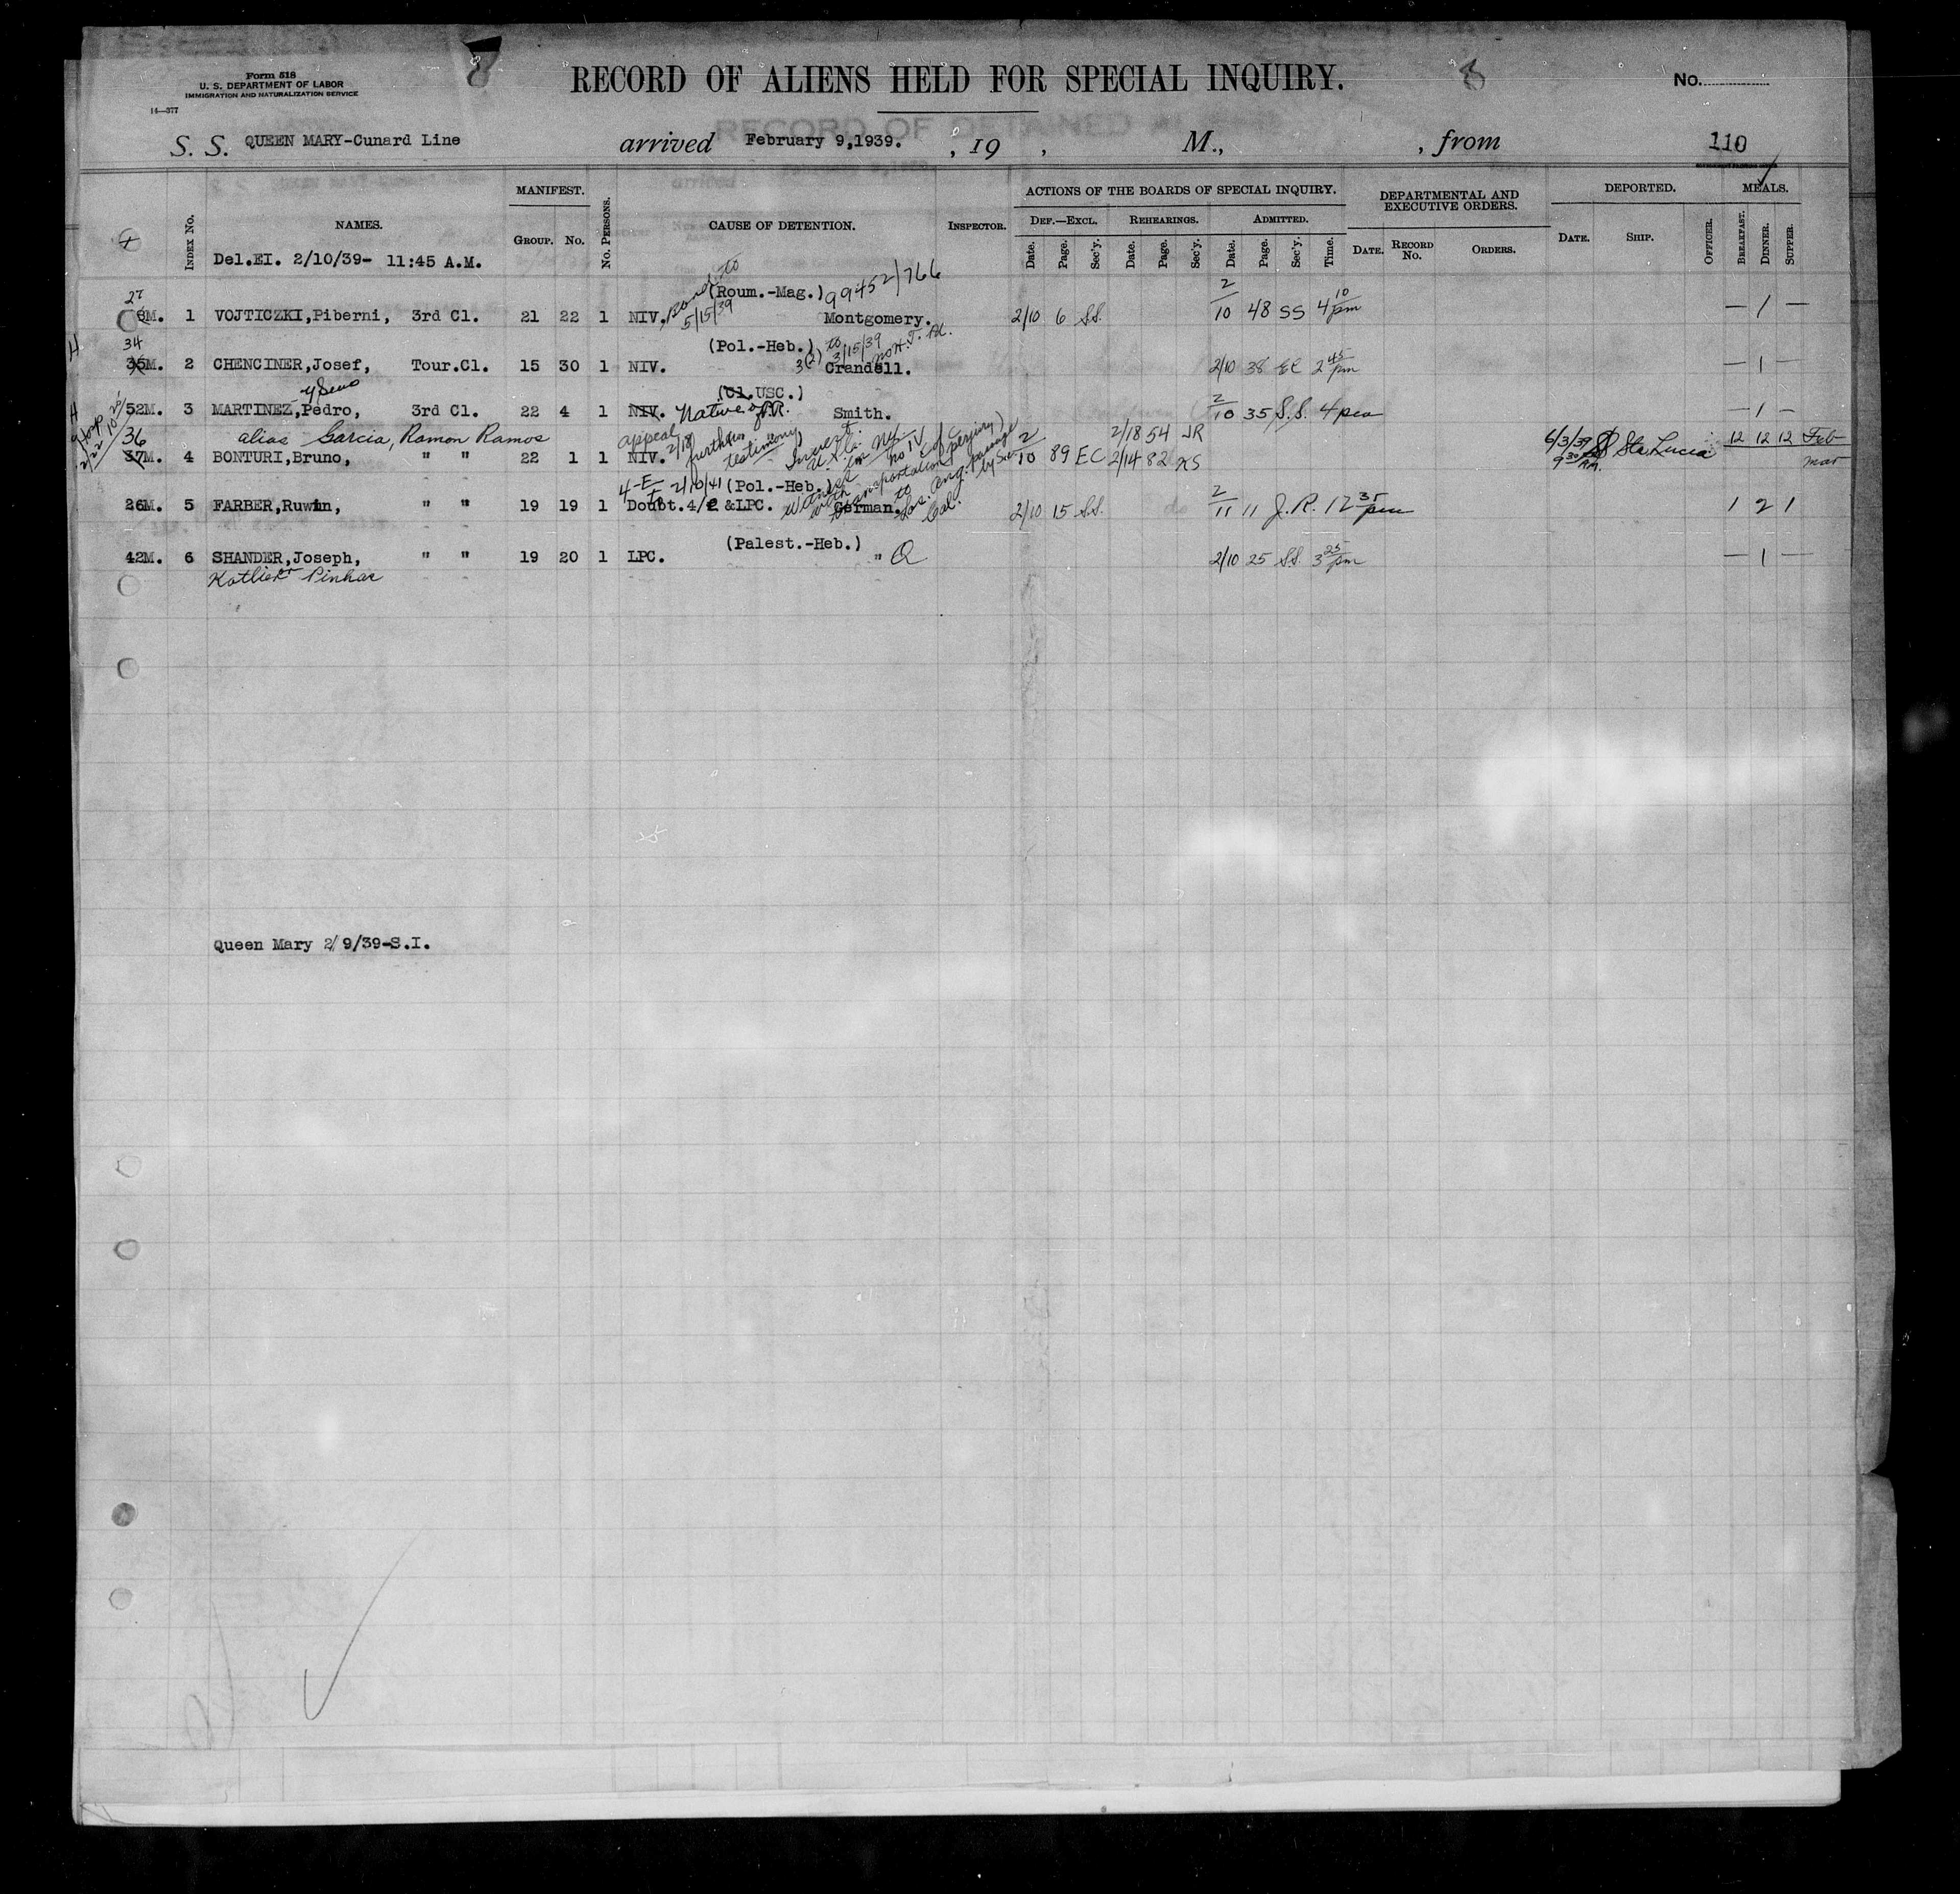 Form 518
U. S. DEPARTMENT OF LABOR
IMMIGRATION AND NATURALIZATION SERVICE
14—377
8
RECORD OF ALIENS HELD FOR SPECIAL INQUIRY.
8
No.
S. S. QUEEN MARY-Cunard Line arrived February 9,1939. , 19 , M., , from 110
INDEX No. NAMES. MANIFEST. GROUP. No. No. PERSONS. CAUSE OF DETENTION. INSPECTOR. ACTIONS OF THE BOARDS OF SPECIAL INQUIRY. DEF.—EXCL. Date. Page. Sec'y. REHEARINGS. Date. Page. Sec'y. ADMITTED. Date. Page. Sec'y. Time. DEPARTMENTAL AND EXECUTIVE ORDERS. DATE. RECORD No. ORDERS. DEPORTED. DATE. SHIP. OFFICER. MEALS. BREAKFAST. DINNER. SUPPER.
Del.EI. 2/10/39- 11:45 A.M.
27 Bond to (Roum.-Mag.) 99452/766
M. 1 VOJTICZKI,Piberni, 3rd Cl. 21 22 1 NIV. 5/15/39 Montgomery. 2/10 6 SS. 2/10 48 SS 4 10 pm — 1 —
34 (Pol.-Heb.) to 3/15/39 no H.T.
H 35M. 2 CHENCINER,Josef, Tour.Cl. 15 30 1 NIV. 3(2) Crandell. 2/10 38 EC 2 45 pm — 1 —
(Cl.USC.)
H 52M. 3 MARTINEZ,Pedro, 3rd Cl. 22 4 1 NIV. Native of P.R. Smith. 2/10 35 S.S. 4 pm — 1 —
36 alias Garcia, Ramon Ramos appeal 2/18 further testimony 2/18 54 JR
37M. 4 BONTURI,Bruno, " " 22 1 1 NIV. 2/10 89 EC 2/14 82 KS 6/3/39 9 30 AM. Sta Lucia 12 12 12 Feb
Mar
4-E- 2/10/41 (Pol.-Heb.)
26M. 5 FARBER,Ruwin, " " 19 19 1 Doubt. 4/2 &LPC. German. to Los. Ang. Cal. 2/10 15 SS. 2/11 11 J.R. 12 35 pm 1 2 1
(Palest.-Heb.)
42M. 6 SHANDER,Joseph, " " 19 20 1 LPC. " Q 2/10 25 S.S. 3 25 pm — 1 —
Pinhas
Queen Mary 2/9/39-S.I.